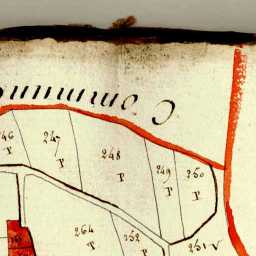 Commun
46
P
247
P
248
P
249
P
250
P
251 V
264
P
252
P